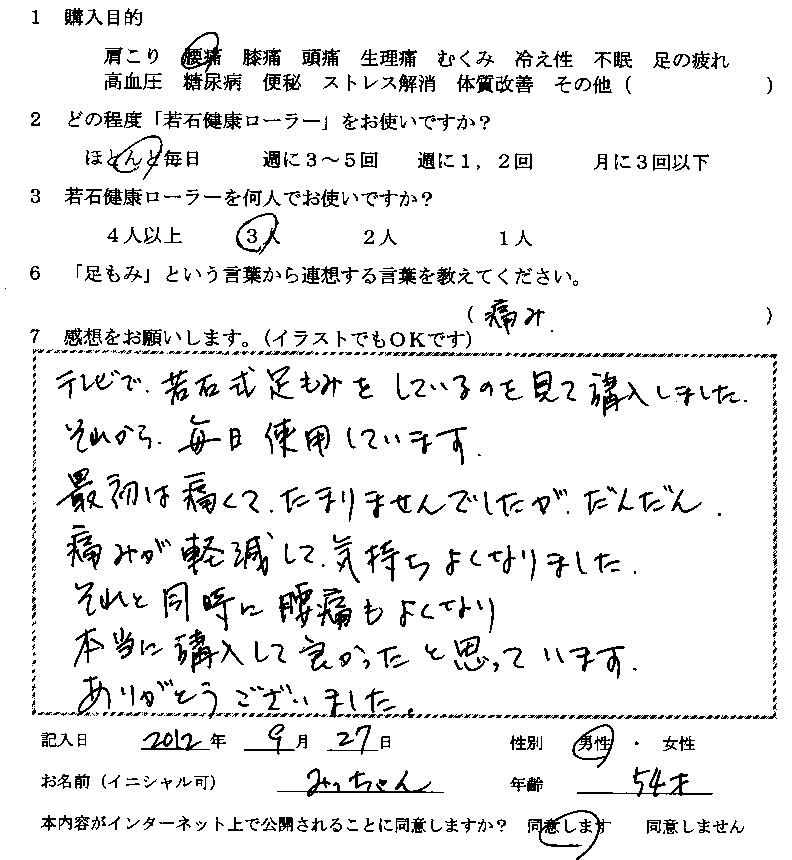 1 購入目的
肩こり 腰痛 膝痛 頭痛 生理痛 むくみ 冷え性 不眠 足の疲れ
高血圧 糖尿病 便秘 ストレス解消 体質改善 その他( )
2 どの程度「若石健康ローラー」をお使いですか?
ほとんど毎日 週に3〜5回 週に1,2回 月に3回以下
3 若石健康ローラーを何人でお使いですか?
4人以上 3人 2人 1人
6 「足もみ」という言葉から連想する言葉を教えてください。
(痛み. )
7 感想をお願いします。(イラストでもOKです)
テレビで、若石式足もみをしているのを見て購入しました.
それから、毎日使用しています.
最初は痛くて、たまりませんでしたが、だんだん、
痛みが軽減して、気持ちよくなりました.
それと同時に腰痛もよくなり
本当に購入して良かったと思っています.
ありがとうございました。
記入日 2012年 9月 27日 性別 男性 ・ 女性
お名前(イニシャル可) みっちゃん 年齢 54才
本内容がインターネット上で公開されることに同意しますか? 同意します 同意しません